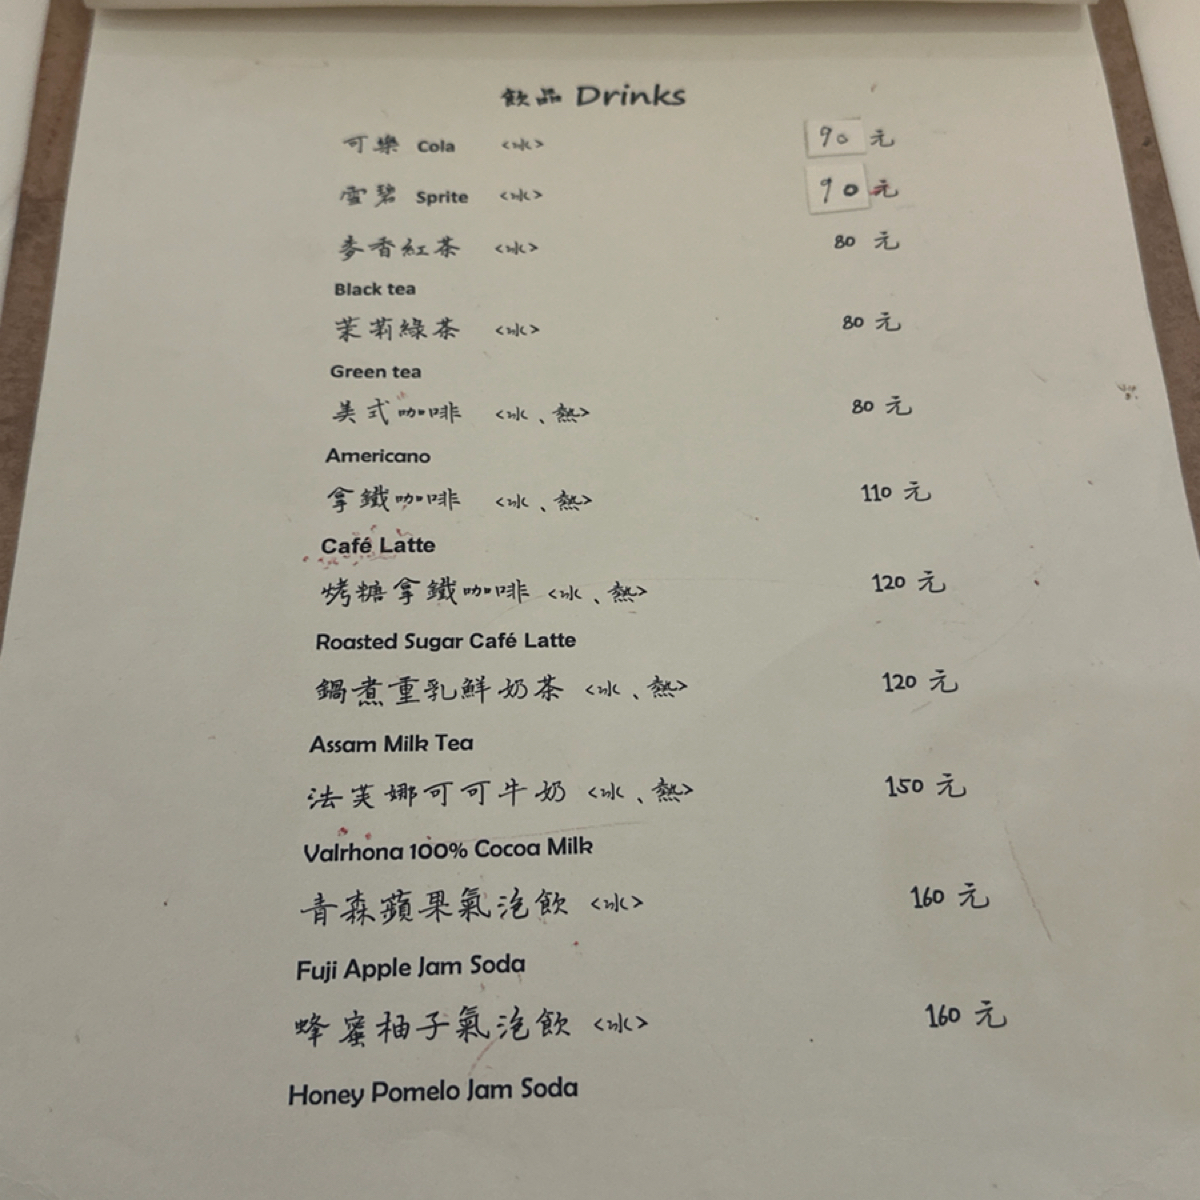 飲品 Drinks
可樂 Cola <冰> 90 元
雪碧 Sprite <冰> 90 元
麥香紅茶 <冰> 80 元
Black tea
茉莉綠茶 <冰> 80 元
Green tea
美式咖啡 <冰、熱> 80 元
Americano
拿鐵咖啡 <冰、熱> 110 元
Café Latte
烤糖拿鐵咖啡 <冰、熱> 120 元
Roasted Sugar Café Latte
鍋煮重乳鮮奶茶 <冰、熱> 120 元
Assam Milk Tea
法芙娜可可牛奶 <冰、熱> 150 元
Valrhona 100% Cocoa Milk
青森蘋果氣泡飲 <冰> 160 元
Fuji Apple Jam Soda
蜂蜜柚子氣泡飲 <冰> 160 元
Honey Pomelo Jam Soda